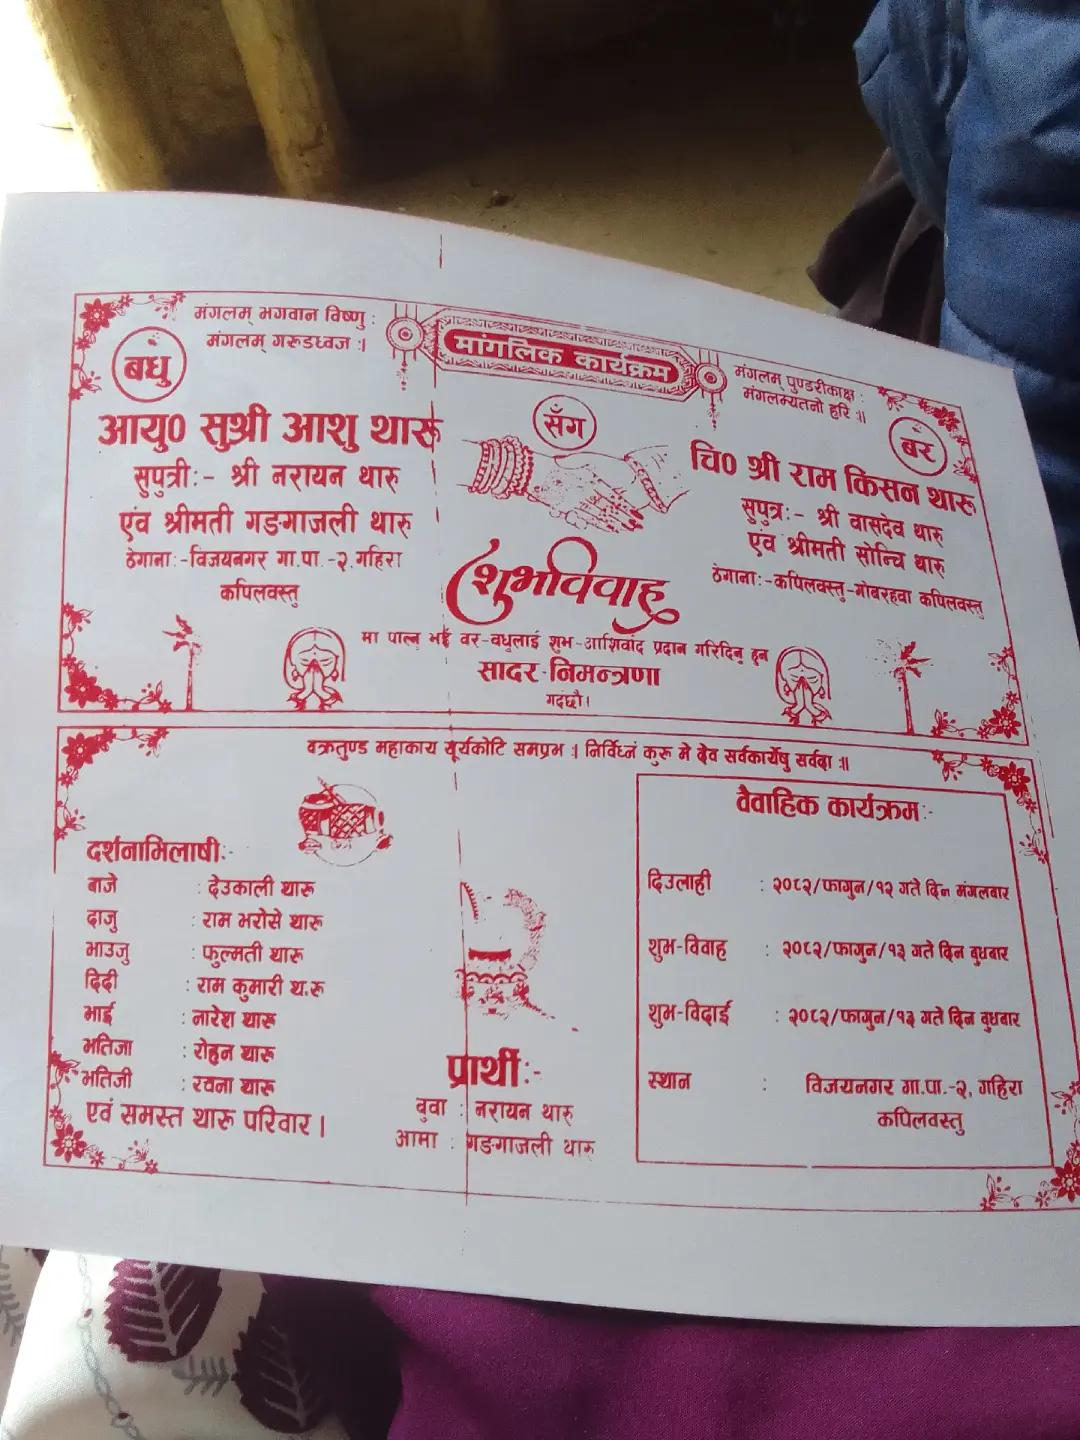 मंगलम् भगवान विष्णु :
मंगलम् गरुडध्वज :।
मांगलिक कार्यक्रम
मंगलम् पुण्डरीकाक्ष :
मंगलम्यतनो हरि :॥
बधु
सँग
बर
आयु० सुश्री आशु थारू
सुपुत्री:- श्री नरायन थारू
एंव श्रीमती गङगाजली थारू
ठेगाना:-विजयनगर गा.पा.-२,गहिरा
कपिलवस्तु
चि० श्री राम किसन थारू
सुपुत्र:- श्री वासदेव थारू
एंव श्रीमती सोन्चि थारू
ठेगाना:-कपिलवस्तु-गोबरहवा कपिलवस्तु
शुभविवाह
मा पाल्नु भई वर-वधुलाई शुभ-आशिर्वाद प्रदान गरिदिनु हुन
सादर-निमन्त्रणा
गर्दछौ।
वक्रतुण्ड महाकाय सूर्यकोटि समप्रभ । निर्विघ्नं कुरू मे देव सर्वकार्येषु सर्वदा ॥
दर्शनाभिलाषी:-
बाजे : देउकाली थारू
दाजु : राम भरोसे थारू
भाउजु : फुल्मती थारू
दिदी : राम कुमारी थारू
भाई : नारेश थारू
भतिजा : रोहन थारू
भतिजी : रचना थारू
एवं समस्त थारू परिवार।
प्रार्थी:-
बुवा : नरायन थारू
आमा : गङगाजली थारू
वैवाहिक कार्यक्रम:-
दिउलाही : २०८२/फागुन/१२ गते दिन मंगलबार
शुभ-विवाह : २०८२/फागुन/१३ गते दिन बुधबार
शुभ-विदाई : २०८२/फागुन/१३ गते दिन बुधबार
स्थान : विजयनगर गा.पा.-२, गहिरा
कपिलवस्तु